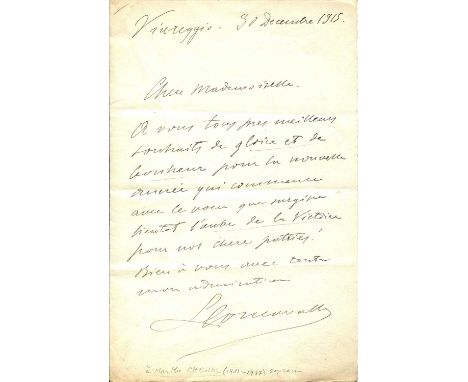 Viareggio. 30 Decembre 1915.
Chere Mademoiselle.
A vous tous mes meilleurs
souhaits de gloire et de
bonheur pour la nouvelle
année qui commence
avec le voeu que surgisse
bientot l'aube de la Victoire
pour nos chere patries!
Bien à vous avec toute
mon admiration
Leoncavallo
à Marthe (18 - 19 ) soprano